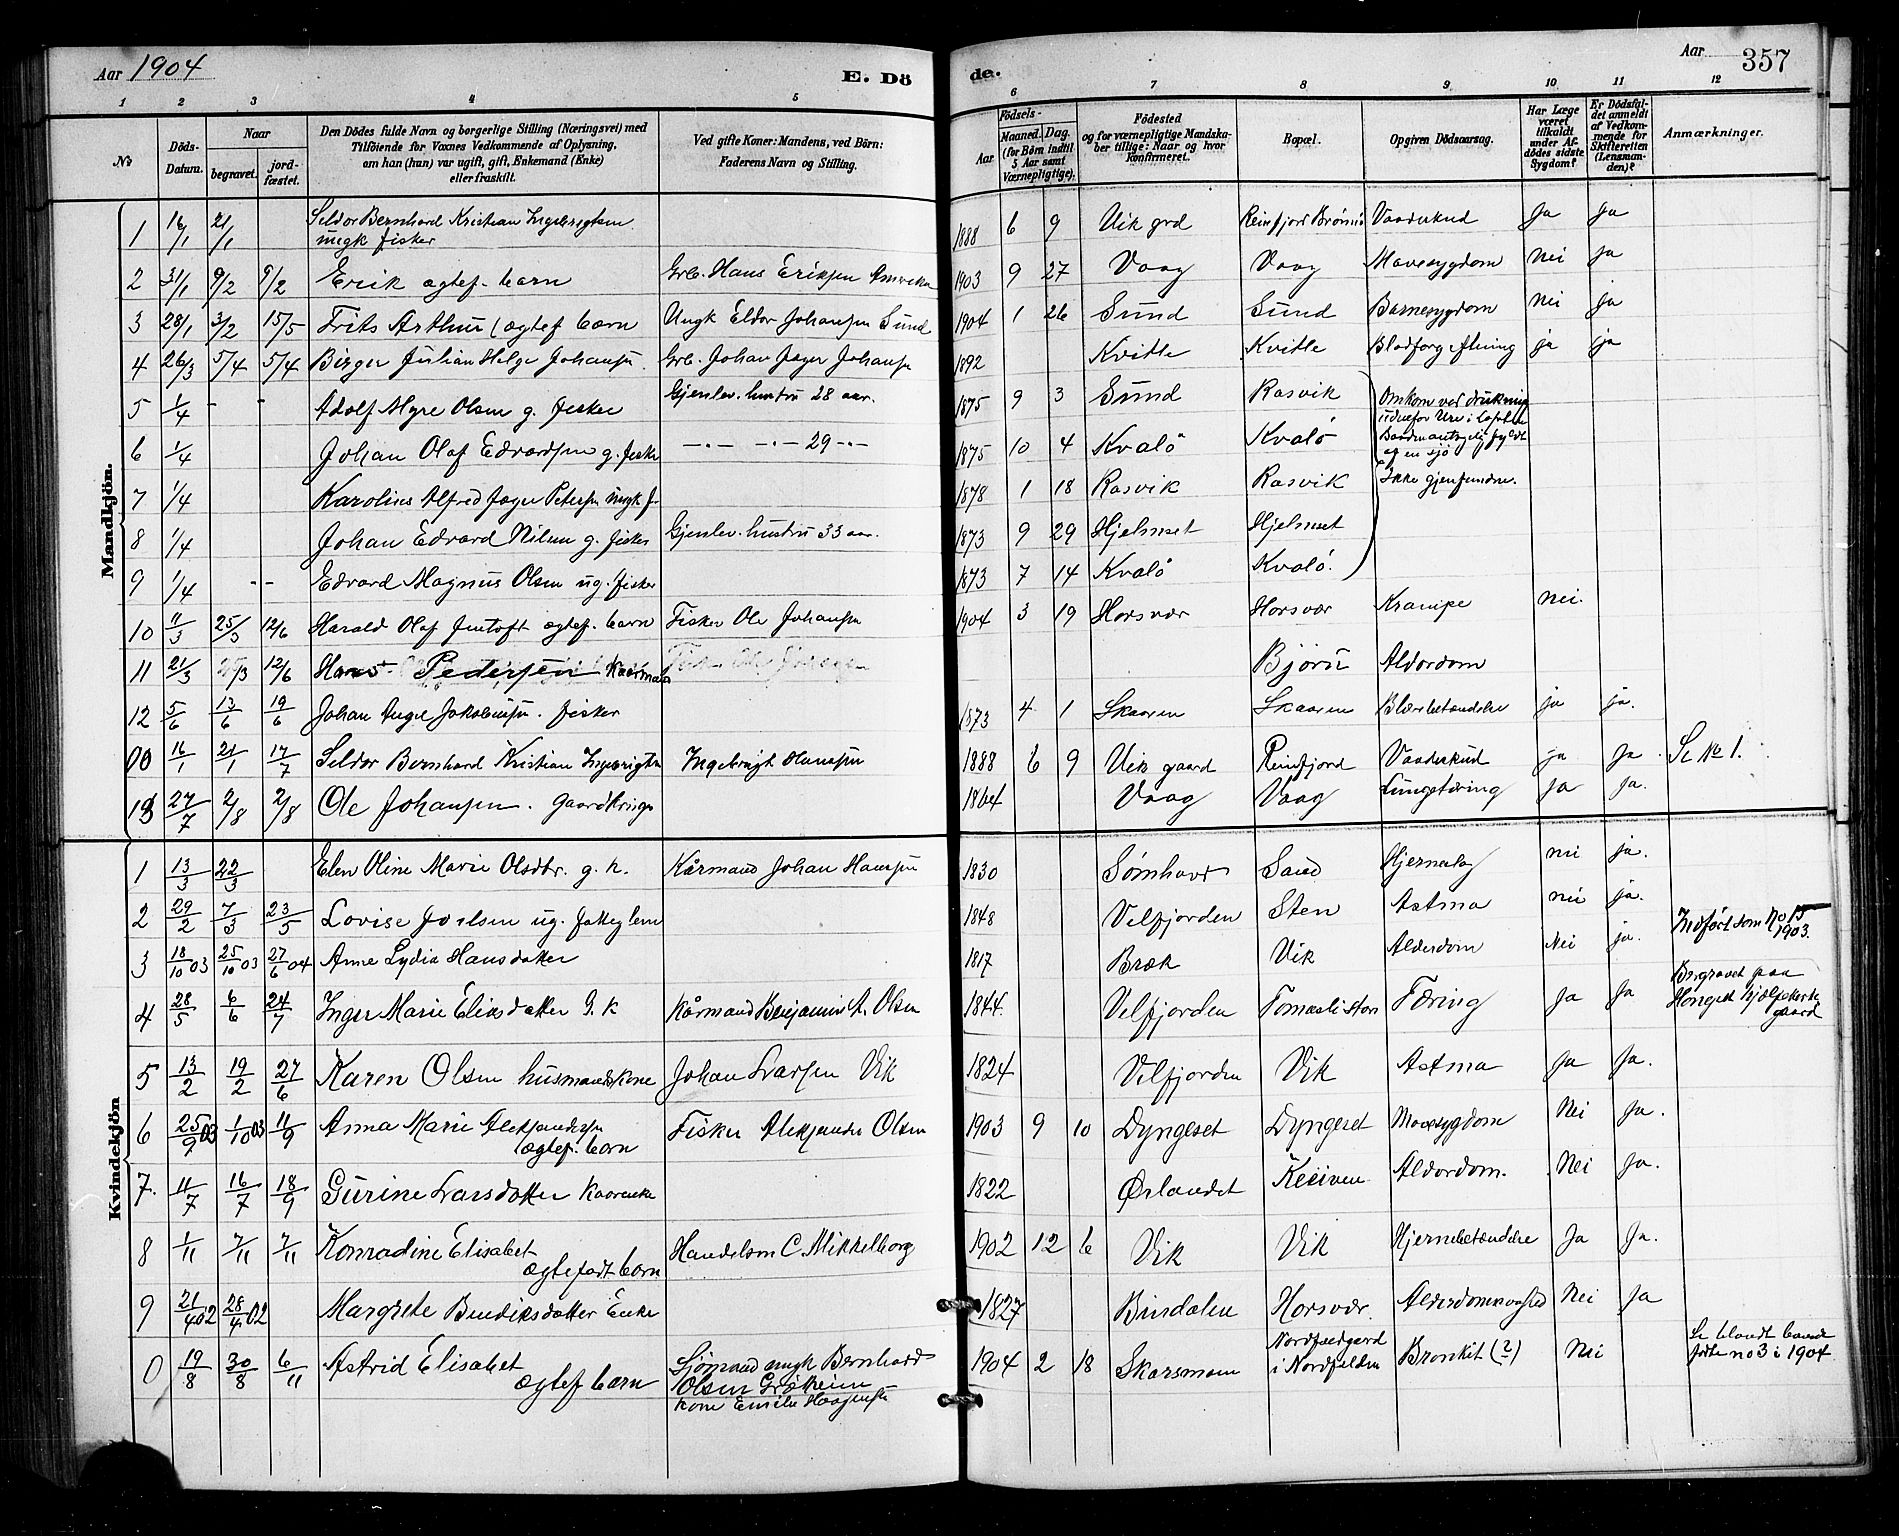 Aar 1904 E. Dö
de. Aar 357
1 2 3 4 5 6 7 8 9 10 11 12
No
Döds-Datum.
Naar
begravet. jordfæstet.
Den Dödes fulde Navn og borgerlige Stilling (Næringsvei) med
Tilföiende for Voxnes Vedkommende af Oplysning,
om han (hun) var ugift, gift, Enkemand (Enke)
eller fraskilt.
Ved gifte Koner: Mandens, ved Börn:
Faderens Navn og Stilling.
Födsels-
Aar Maaned. Dag.
(for Börn indtil
5 Aar samt
Værnepligtige).
Födested
og for værnepligtige Mandska-
ber tillige: Naar og hvor
konfirmeret.
Bopæl.
Opgiven Dödsaarsag.
Har Læge
været
tilkaldt
under Af-
dödes sidste
Sygdom?
Er Dödsfal-
det anmeldt
af Vedkom-
mende for
Skifteretten
(Lensman-
den)?
Anmærkninger.
Mandkjön.
1 16/1 21/1 Seldor Bernhard Kristian Ingebrigtsen 1888 6 9 Vik grd Reinfjord Brönnö Vaadeskud Ja Ja
ungk fisker
2 31/1 9/2 9/2 Erik ægtef. barn Grb. Hans Eriksen Amerika 1903 9 27 Vaag Vaag Mavesygdom Nei Ja
3 28/1 3/2 15/5 Frits Arthur ægtef barn Ungk Eldor Johansen Sund 1904 1 26 Sund Sund Barnesygdom Nei ja
4 26/3 5/4 5/4 Birger Julian Helge Johansen Grb. Johan Jager Johansen 1892 Kvitle Kvitle Blodforgiftning ja ja
5 1/4 - - Adolf Myre Olsen g. fisker Gjenlev. hustru 28 aar. 1875 9 3 Sund Rasvik Omkom ved drukning
udenfor Ure i Lofoten
6 1/4 Johan Olaf Edvardsen g. fisker -"- -"- 29 -"- 1875 10 4 Kvalö Kvalö
af en sjö
7 1/4 Karolius Alfred Jager Petersen ungk f. 1878 1 18 Rasvik Rasvik Ikke gjenfundne.
8 1/4 Johan Edvard Nilsen g. fisker Gjenlev. hustru 33 aar. 1873 9 29 Hjelmset Hjelmset
9 1/4 - - Edvard Magnus Olsen ug. fisker 1873 7 14 Kvalö Kvalö.
10 11/3 25/3 12/6 Harald Olaf Jentoft ægtef. barn Fisker Ole Johansen 1904 3 19 Horsvær Horsvær Krampe nei.
11 21/3 12/6 Hans Pedersen Kaarmand Björn Alderdom
12 5/6 13/6 19/6 Johan Angel Jakobsen. fisker 1873 4 1 Skaaren Skaaren Blærebetændelse ja ja.
00 16/1 21/1 17/7 Seldor Bernhard Kristian Ingebrigtsen Ingebrigt Hansen 1888 6 9 Vik gaard Reinfjord Vaadeskud ja Ja Se No 1.
13 27/7 2/8 2/8 Ole Johansen. Gaardbruger 1864 Vaag Vaag Lungetæring Ja Ja.
Kvindekjön
1 13/3 22/3 Elen Oline Marie Olsdtr. g. k. Kårmand Johan Hansen 1830 Sömhovd Sand Hjerneslag nei ja.
2 29/2 7/3 23/5 Lovise Joelsen ug. fattiglem 1848 Velfjorden Sten Astma nei ja.
3 18/10 03 25/10 03 27/6 04 Anne Lydia Hansdatter 1817 Bræk Vik Alderdom Nei ja. Indfört som No 15
1903.
4 28/5 6/6 24/7 Inger Marie Eliasdatter G. k Kårmand Benjamin A. Olsen 1844. Velfjorden Tæring Ja Ja Begravet paa
Hongset hjælpekirke
gaard
5 13/2 19/2 27/6 Karen Olsen husmandskone Johan Larsen Vik 1824 Velfjorden Vik Astma Ja Ja.
6 25/9 03 1/10 03 11/9 Anna Marie Aleksandersen Fisker Aleksander Olsen 1903 9 10 Dyngeset Dyngeset Mavesygdom Nei Ja.
ægtef. barn
7. 11/7 16/7 18/9 Gurine Larsdatter Kaarenke 1822 Ørlandet Alderdom. Nei Ja.
8 1/11 7/11 7/11 Konradine Elisabet Handelsm C. Mikkelborg 1902 12 6 Vik Vik Hjernebetændelse Ja Ja.
ægtefødt barn
9 21/4 02 28/4 02 Margrete Bendiksdatter Enke 1827 Bindalen Horsvær. Nei Ja
0 19/8 30/8 6/11 Astrid Elisabet Sjömand ungk Bernhard 1904 2 18 Nordfjeldgaard Bronkit (?) Nei Se blandt barnd
ægtef barn Olsen i Nordfolden födte no 3 i 1904
kone Emilie